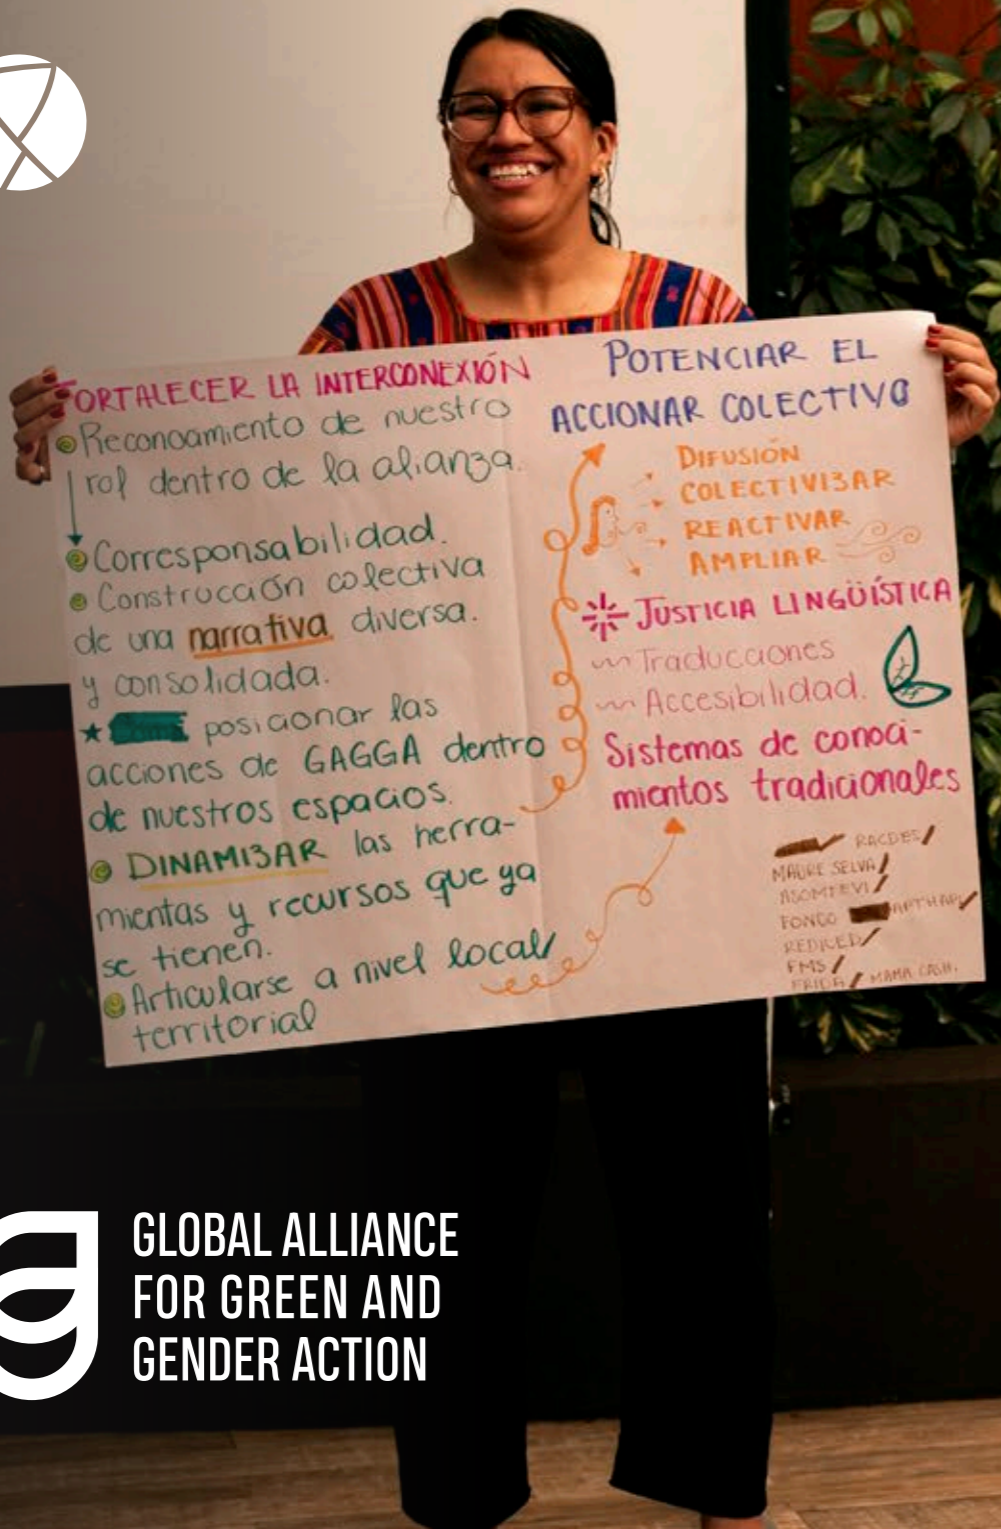 FORTALECER LA INTERCONEXIÓN
Reconocimiento de nuestro
rol dentro de la alianza.
Corresponsabilidad.
Construcción colectiva
de una narrativa diversa.
y consolidada.
posicionar las
acciones de GAGGA dentro
de nuestros espacios.
DINAMIZAR las herra-
mientas y recursos que ya
se tienen.
Articularse a nivel local/
territorial
POTENCIAR EL
ACCIONAR COLECTIVO
DIFUSIÓN
COLECTIVIZAR
REACTIVAR
AMPLIAR
JUSTICIA LINGÜÍSTICA
Traducciones
Accesibilidad.
Sistemas de conoci-
mientos tradicionales
RACDES/
MADRE SELVA/
FONDO
FMS/
FRIDA/ MAMA CASH.
GLOBAL ALLIANCE
FOR GREEN AND
GENDER ACTION